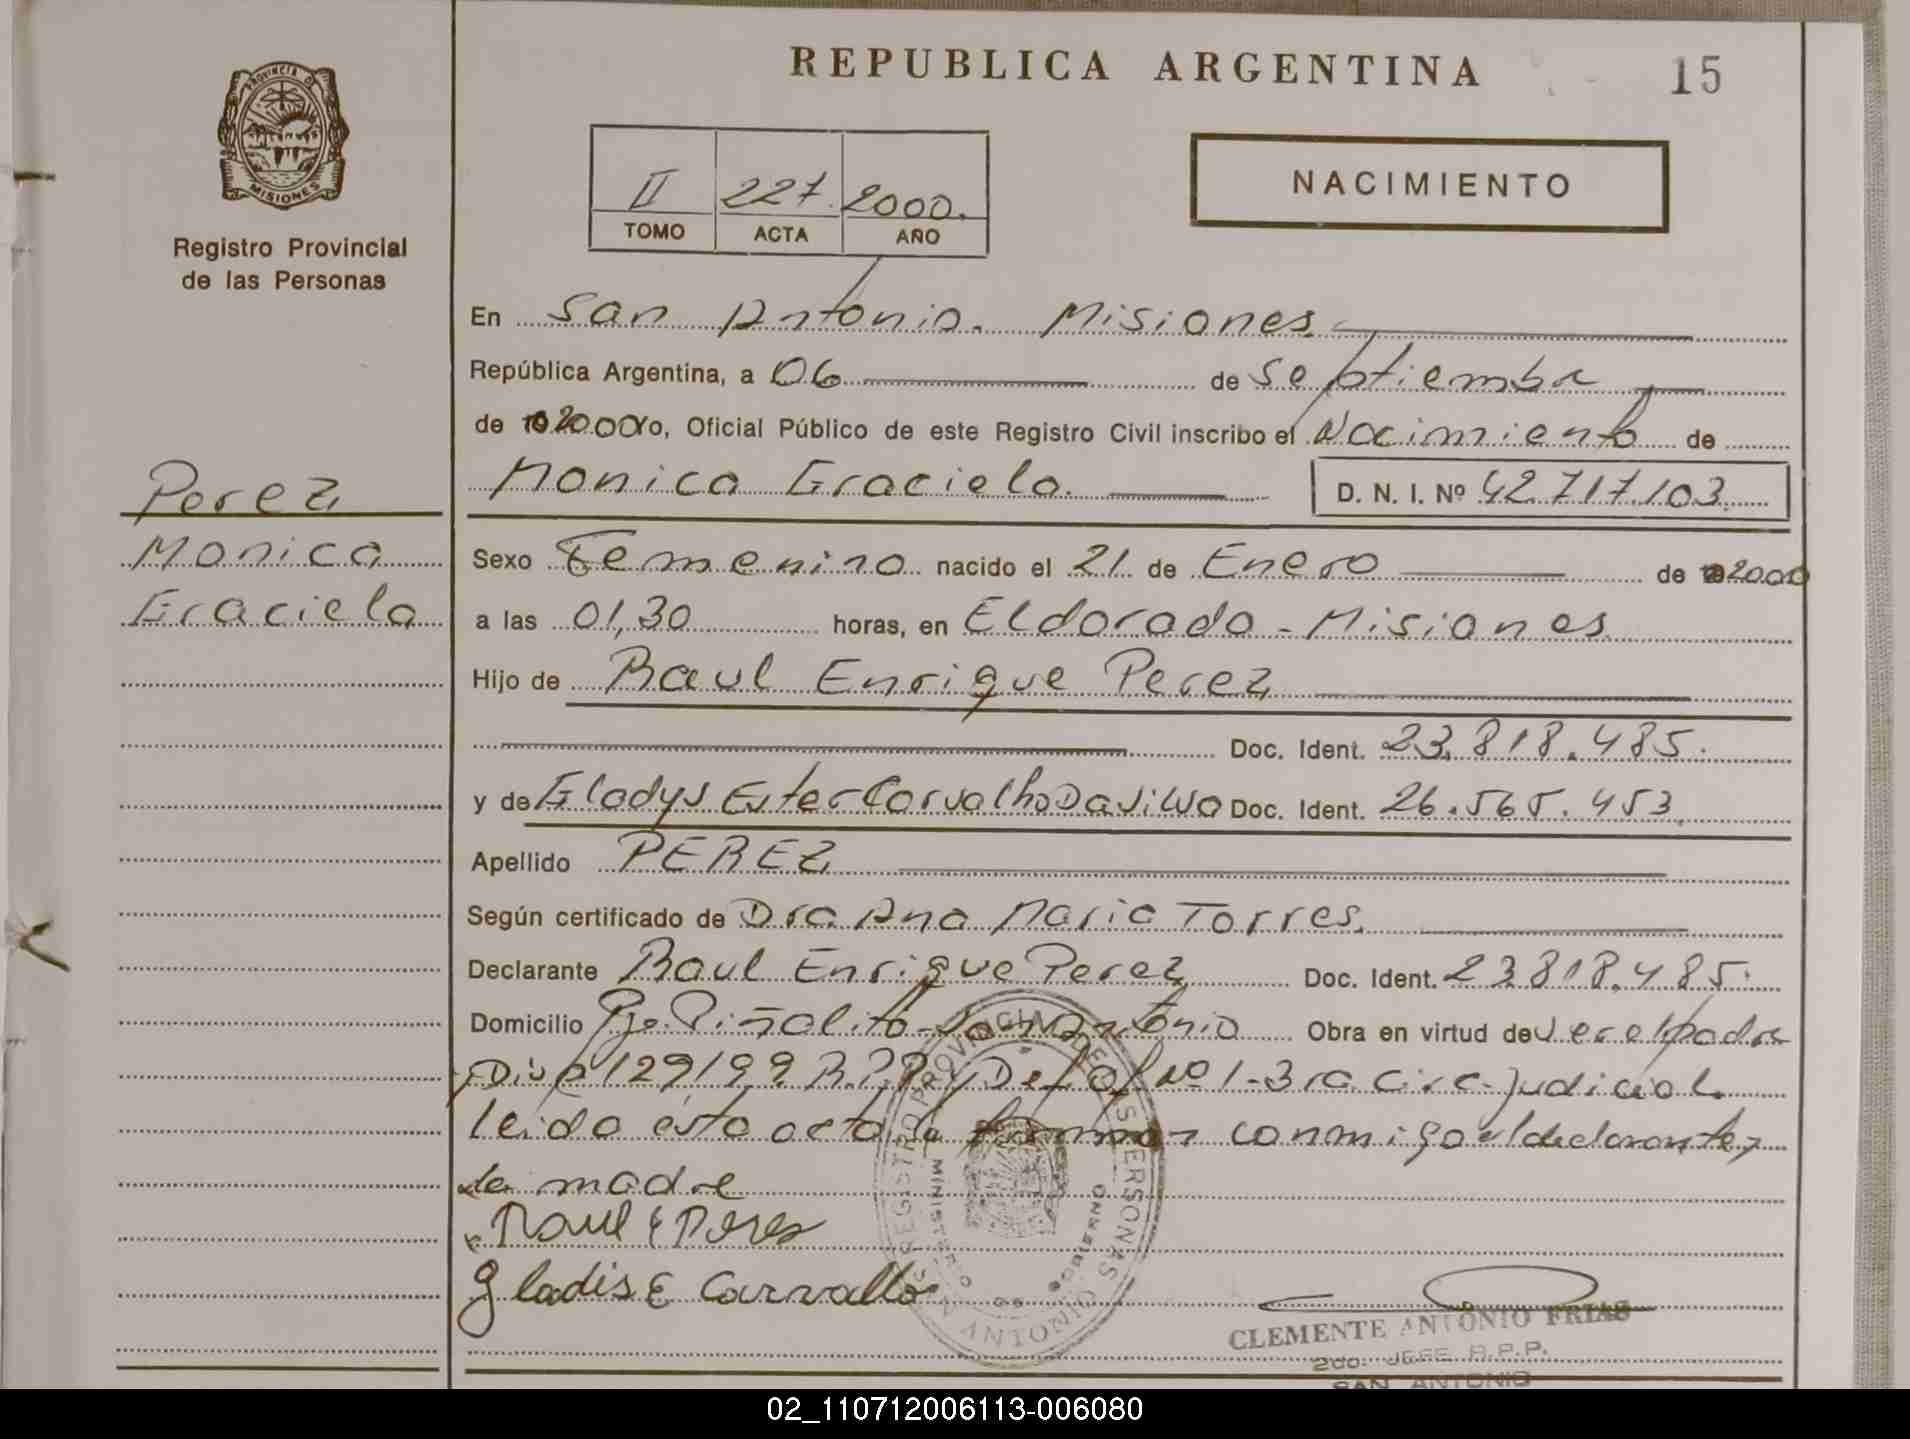 REPUBLICA ARGENTINA
15
PROVINCIA DE
MISIONES
Registro Provincial
de las Personas
II 227. 2000.
TOMO ACTA AÑO
NACIMIENTO
En San Antonio. Misiones
República Argentina, a 06 de Septiembre
de 2000 yo, Oficial Público de este Registro Civil inscribo el Nacimiento de
Monica Graciela. D. N. I. Nº 42.717.103
Perez
Monica
Graciela
Sexo Femenino nacido el 21 de Enero de 2000
a las 01,30 horas, en Eldorado - Misiones
Hijo de Raul Enrique Perez
Doc. Ident. 23.818.485.
y de Gladys Ester Carvalho Da Silva Doc. Ident. 26.565.453.
Apellido PEREZ
Según certificado de Dra Ana Maria Torres.
Declarante Raul Enrique Perez Doc. Ident. 23.818.485.
Domicilio Pje. Piñalito - San Antonio Obra en virtud de ser el padre
Disp 129/99 R.P.P. y Def Of Nº 1 - 3ra Circ. Judicial.
leida esta acta la firman conmigo el declarante y
la madre
Raul E Perez
Gladis E Carvallo
REGISTRO PROVINCIAL DE LAS PERSONAS
MINISTERIO DE GOBIERNO
SAN ANTONIO
CLEMENTE ANTONIO FRIAS
2do. JEFE R.P.P.
SAN ANTONIO
02_110712006113-006080